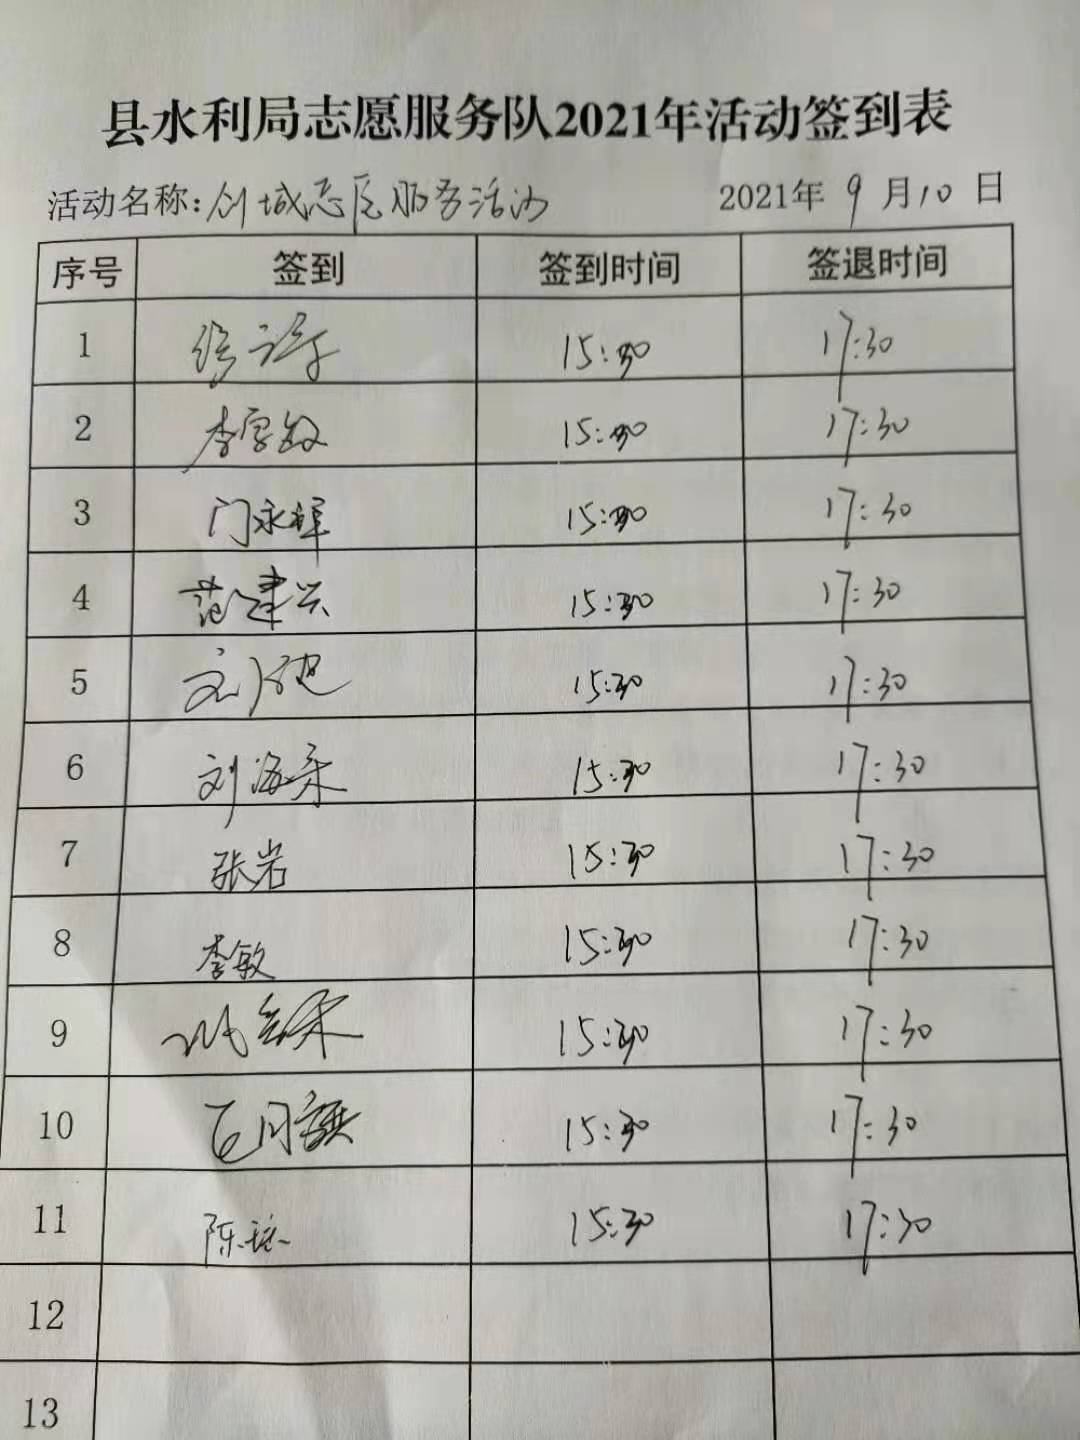 县水利局志愿服务队2021年活动签到表
活动名称:创城志愿服务活动 2021年 9 月 10 日
序号 签到 签到时间 签退时间
1 15:30 17:30
2 李 15:30 17:30
3 门永辉 15:30 17:30
4 范建兴 15:30 17:30
5 15:30 17:30
6 刘海 15:30 17:30
7 张岩 15:30 17:30
8 李敏 15:30 17:30
9 15:30 17:30
10 15:30 17:30
11 陈 15:30 17:30
12
13